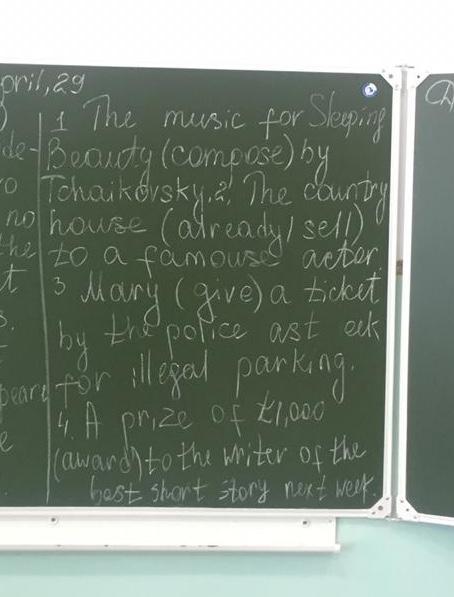 pril, 29
)
de-
ro
no
the
t
s.
pear
e
1 The music for Sleeping
Beauty (compose) by
Tchaikovsky. 2. The country
house (already/ sell)
to a famouse actor
3 Mary (give) a ticket
by the police ast eek
for illegal parking.
4. A prize of £1,000
(award) to the writer of the
best short story next week.